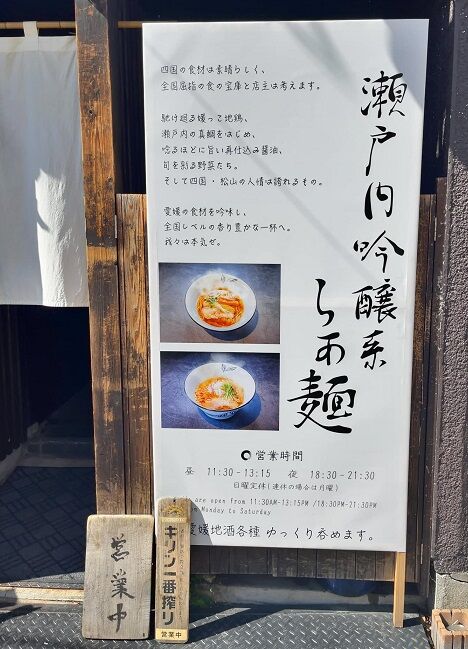 瀬戸内吟醸系
らぁ麺
四国の食材は素晴らしく、
全国屈指の食の宝庫と店主は考えます。
馳け廻る媛っこ地鶏、
瀬戸内の真鯛をはじめ、
唸るほどに旨い再仕込み醤油、
旬を彩る野菜たち。
そして四国・松山の人情は誇れるもの。
愛媛の食材を吟味し、
全国レベルの香り豊かな一杯へ。
我々は本気ぜ。
営業時間
昼 11:30-13:15 夜 18:30-21:30
日曜定休(連休の場合は月曜)
are open from 11:30AM-13:15PM /18:30PM-21:30PM
Monday to Saturday
愛媛地酒各種 ゆっくり呑めます。
営業中
キリン一番搾り
営業中